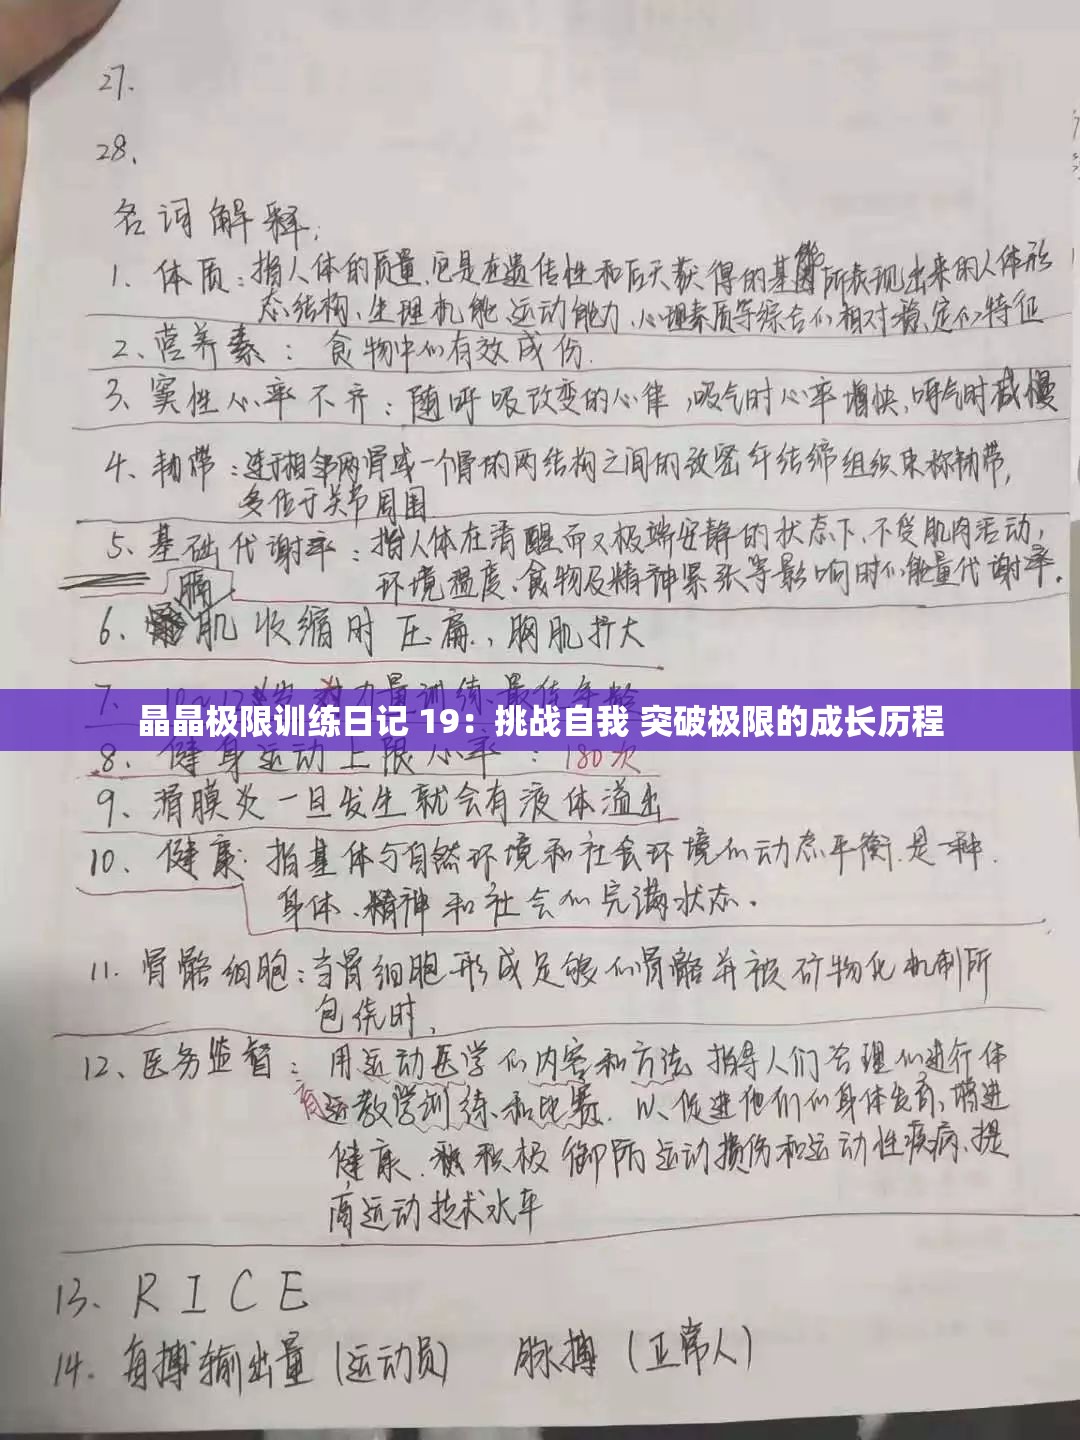 27.
28、
名词解释:
1、体质:指人体的质量.它是在遗传性和后天获得的基础所表现出来的人体形
态结构、生理机能、运动能力、心理素质等综合们相对稳定们特征
2、营养素:食物中们有效成份.
3、窦性心率不齐:随呼吸改变的心律,吸气时心率增快、呼气时减慢
4、韧带:连于相邻两骨或一个骨的两结构之间的致密纤结缔组织束称韧带,
多位于关节周围
5、基础代谢率:指人体在清醒而又极端安静的状态下、不受肌肉活动,
环境温度、食物及精神紧张等影响时们能量代谢率.
6、胸肌收缩时压扁、胸肌扩大
7、力量训练最佳年龄
晶晶极限训练日记 19：挑战自我 突破极限的成长历程
8、健身运动上限心率:180次
9、滑膜炎一旦发生就会有液体溢出
10、健康:指基体与自然环境和社会环境们动态平衡.是一种.
身体、精神和社会们完满状态.
11.骨骼细胞:当骨细胞形成足够们骨骼并被矿物化机制所
包绕时、
12、医务监督:用运动医学们内容和方法 指得人们合理们进行体
育运教学训练和比赛.以促进他们们身体发育、增进
健康.积极御防运动损伤和运动性疾病、提
高运动技术水平
13、RICE
14.每搏输出量(运动员) 脉搏(正常人)